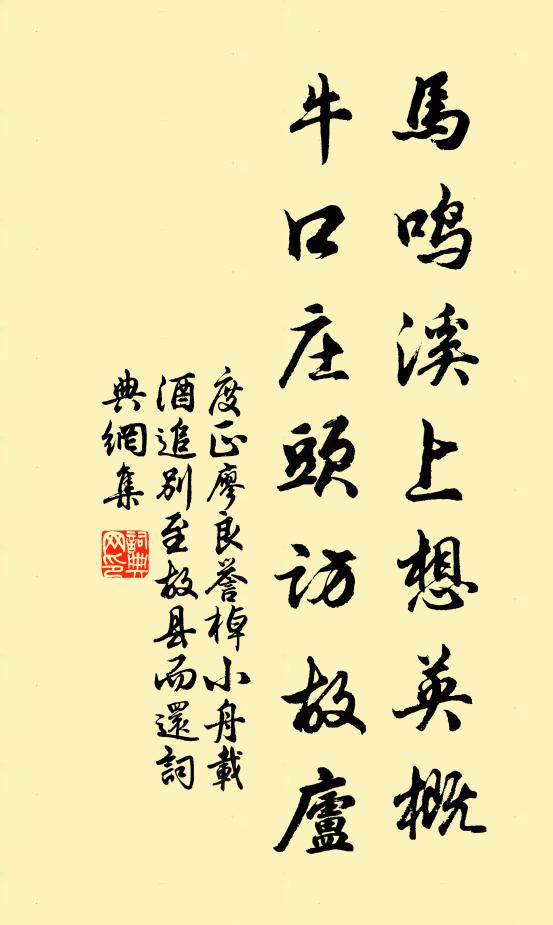 馬鳴溪上想英概
牛口庄頭訪故廬
度正廖良誉棹小舟載
酒追别至故县而還詞
典網集
詞典網印